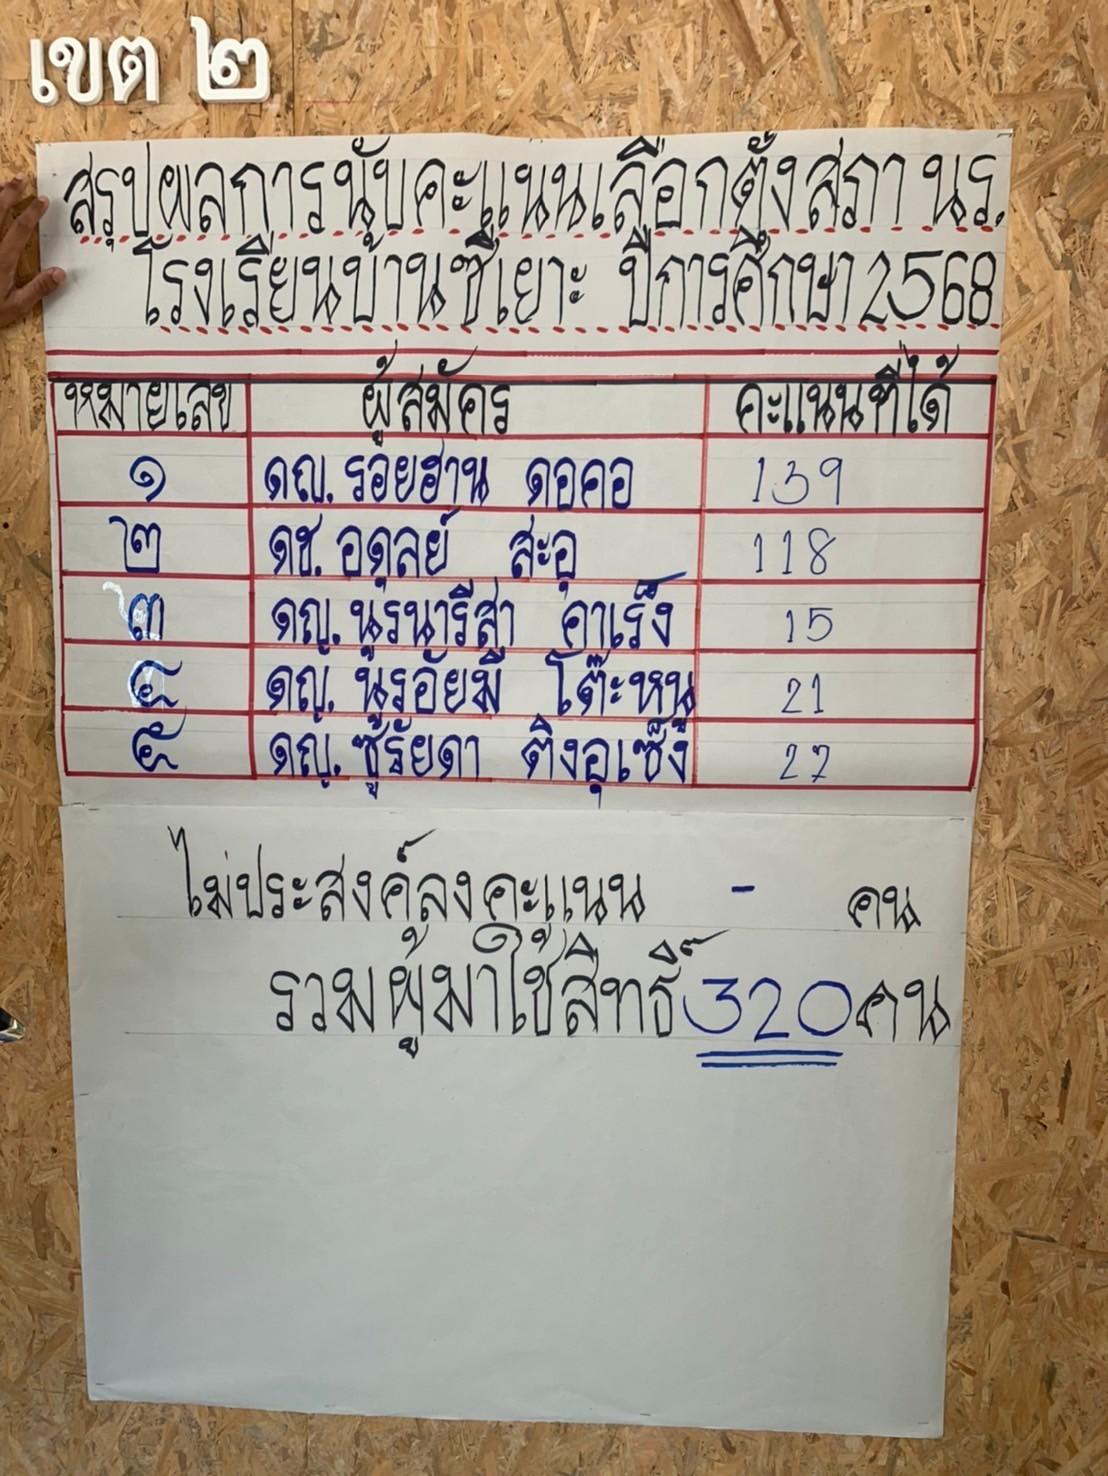 เขต ๒
สรุปผลการนับคะแนนเลือกตั้งสภา นร.
โรงเรียนบ้านซีเยาะ ปีการศึกษา 2568
หมายเลข ผู้สมัคร คะแนนที่ได้
๑ ดญ. รอยฮาน ดอคอ 139
๒ ดช. อดุลย์ สะอุ 118
๓ ดญ. นูรนารีสา คาเร็ง 15
๔ ดญ. นูรอัยมี โต๊ะหนู 21
๕ ดญ. ซูรัยดา ติงอุเซ็ง 27
ไม่ประสงค์ลงคะแนน - คน
รวมผู้มาใช้สิทธิ์ 320 คน